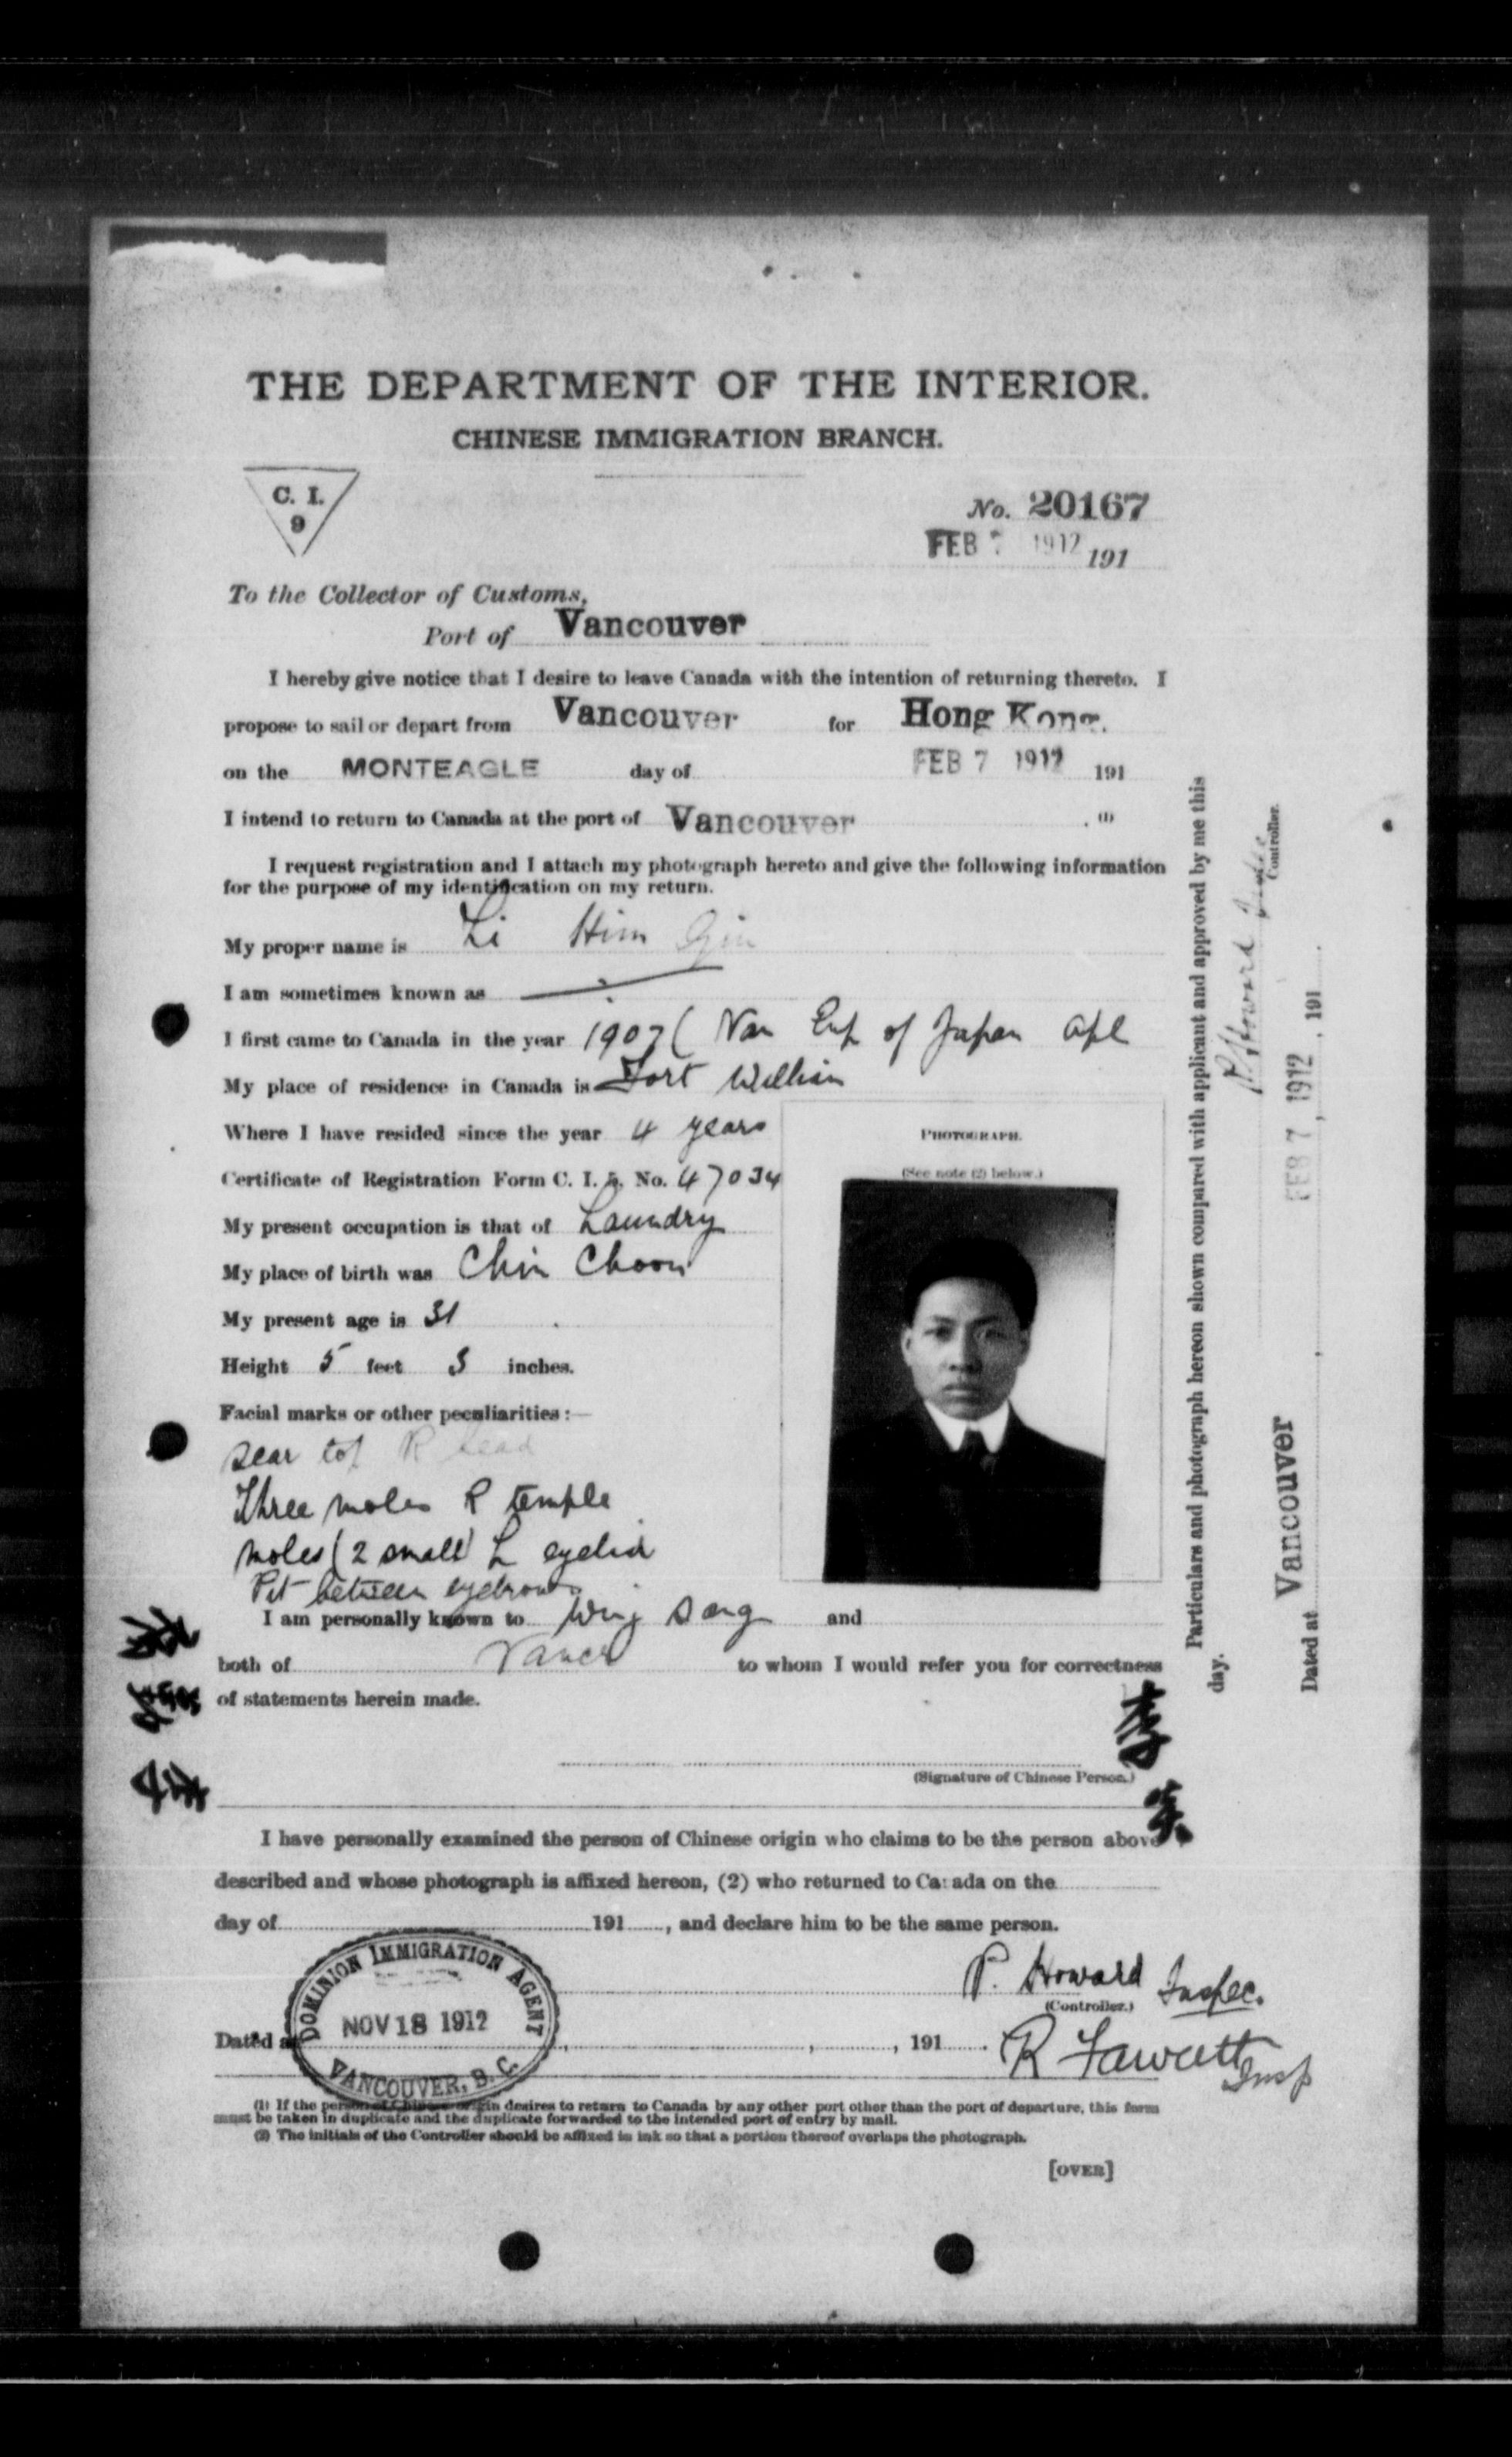 THE DEPARTMENT OF THE INTERIOR.
CHINESE IMMIGRATION BRANCH.
C. I.
9
No. 20167
FEB 7 1912 191
To the Collector of Customs,
Port of Vancouver
I hereby give notice that I desire to leave Canada with the intention of returning thereto. I
propose to sail or depart from Vancouver for Hong Kong.
on the MONTEAGLE day of FEB 7 1912 191
I intend to return to Canada at the port of Vancouver . (1)
I request registration and I attach my photograph hereto and give the following information
for the purpose of my identification on my return.
My proper name is Li Him Gin
I am sometimes known as
I first came to Canada in the year 1907 ( Van Emp of Japan Apl
My place of residence in Canada is Fort William
Where I have resided since the year 4 years
Certificate of Registration Form C. I. 5. No. 47034
My present occupation is that of Laundry
My place of birth was Chin Choon
My present age is 31
Height 5 feet 3 inches.
Facial marks or other peculiarities :—
Scar top R head
Three moles R temple
Moles (2 small) L eyelid
Pit between eyebrows
PHOTOGRAPH.
(See note (2) below.)
I am personally known to Wing Sang and
both of Vancr to whom I would refer you for correctness
of statements herein made.
(Signature of Chinese Person.)
李
I have personally examined the person of Chinese origin who claims to be the person above
described and whose photograph is affixed hereon, (2) who returned to Canada on the
day of 191 , and declare him to be the same person.
P. Howard Inspec.
(Controller.)
Dated at , , 191 .
R Fawcett Insp
DOMINION IMMIGRATION AGENT
NOV 18 1912
VANCOUVER, B. C.
(1) If the person of Chinese origin desires to return to Canada by any other port other than the port of departure, this form
must be taken in duplicate and the duplicate forwarded to the intended port of entry by mail.
(2) The initials of the Controller should be affixed in ink so that a portion thereof overlaps the photograph.
[OVER]
Particulars and photograph hereon shown compared with applicant and approved by me this
day.
P. Howard
Controller.
Dated at Vancouver FEB 7 , 1912 , 191 .